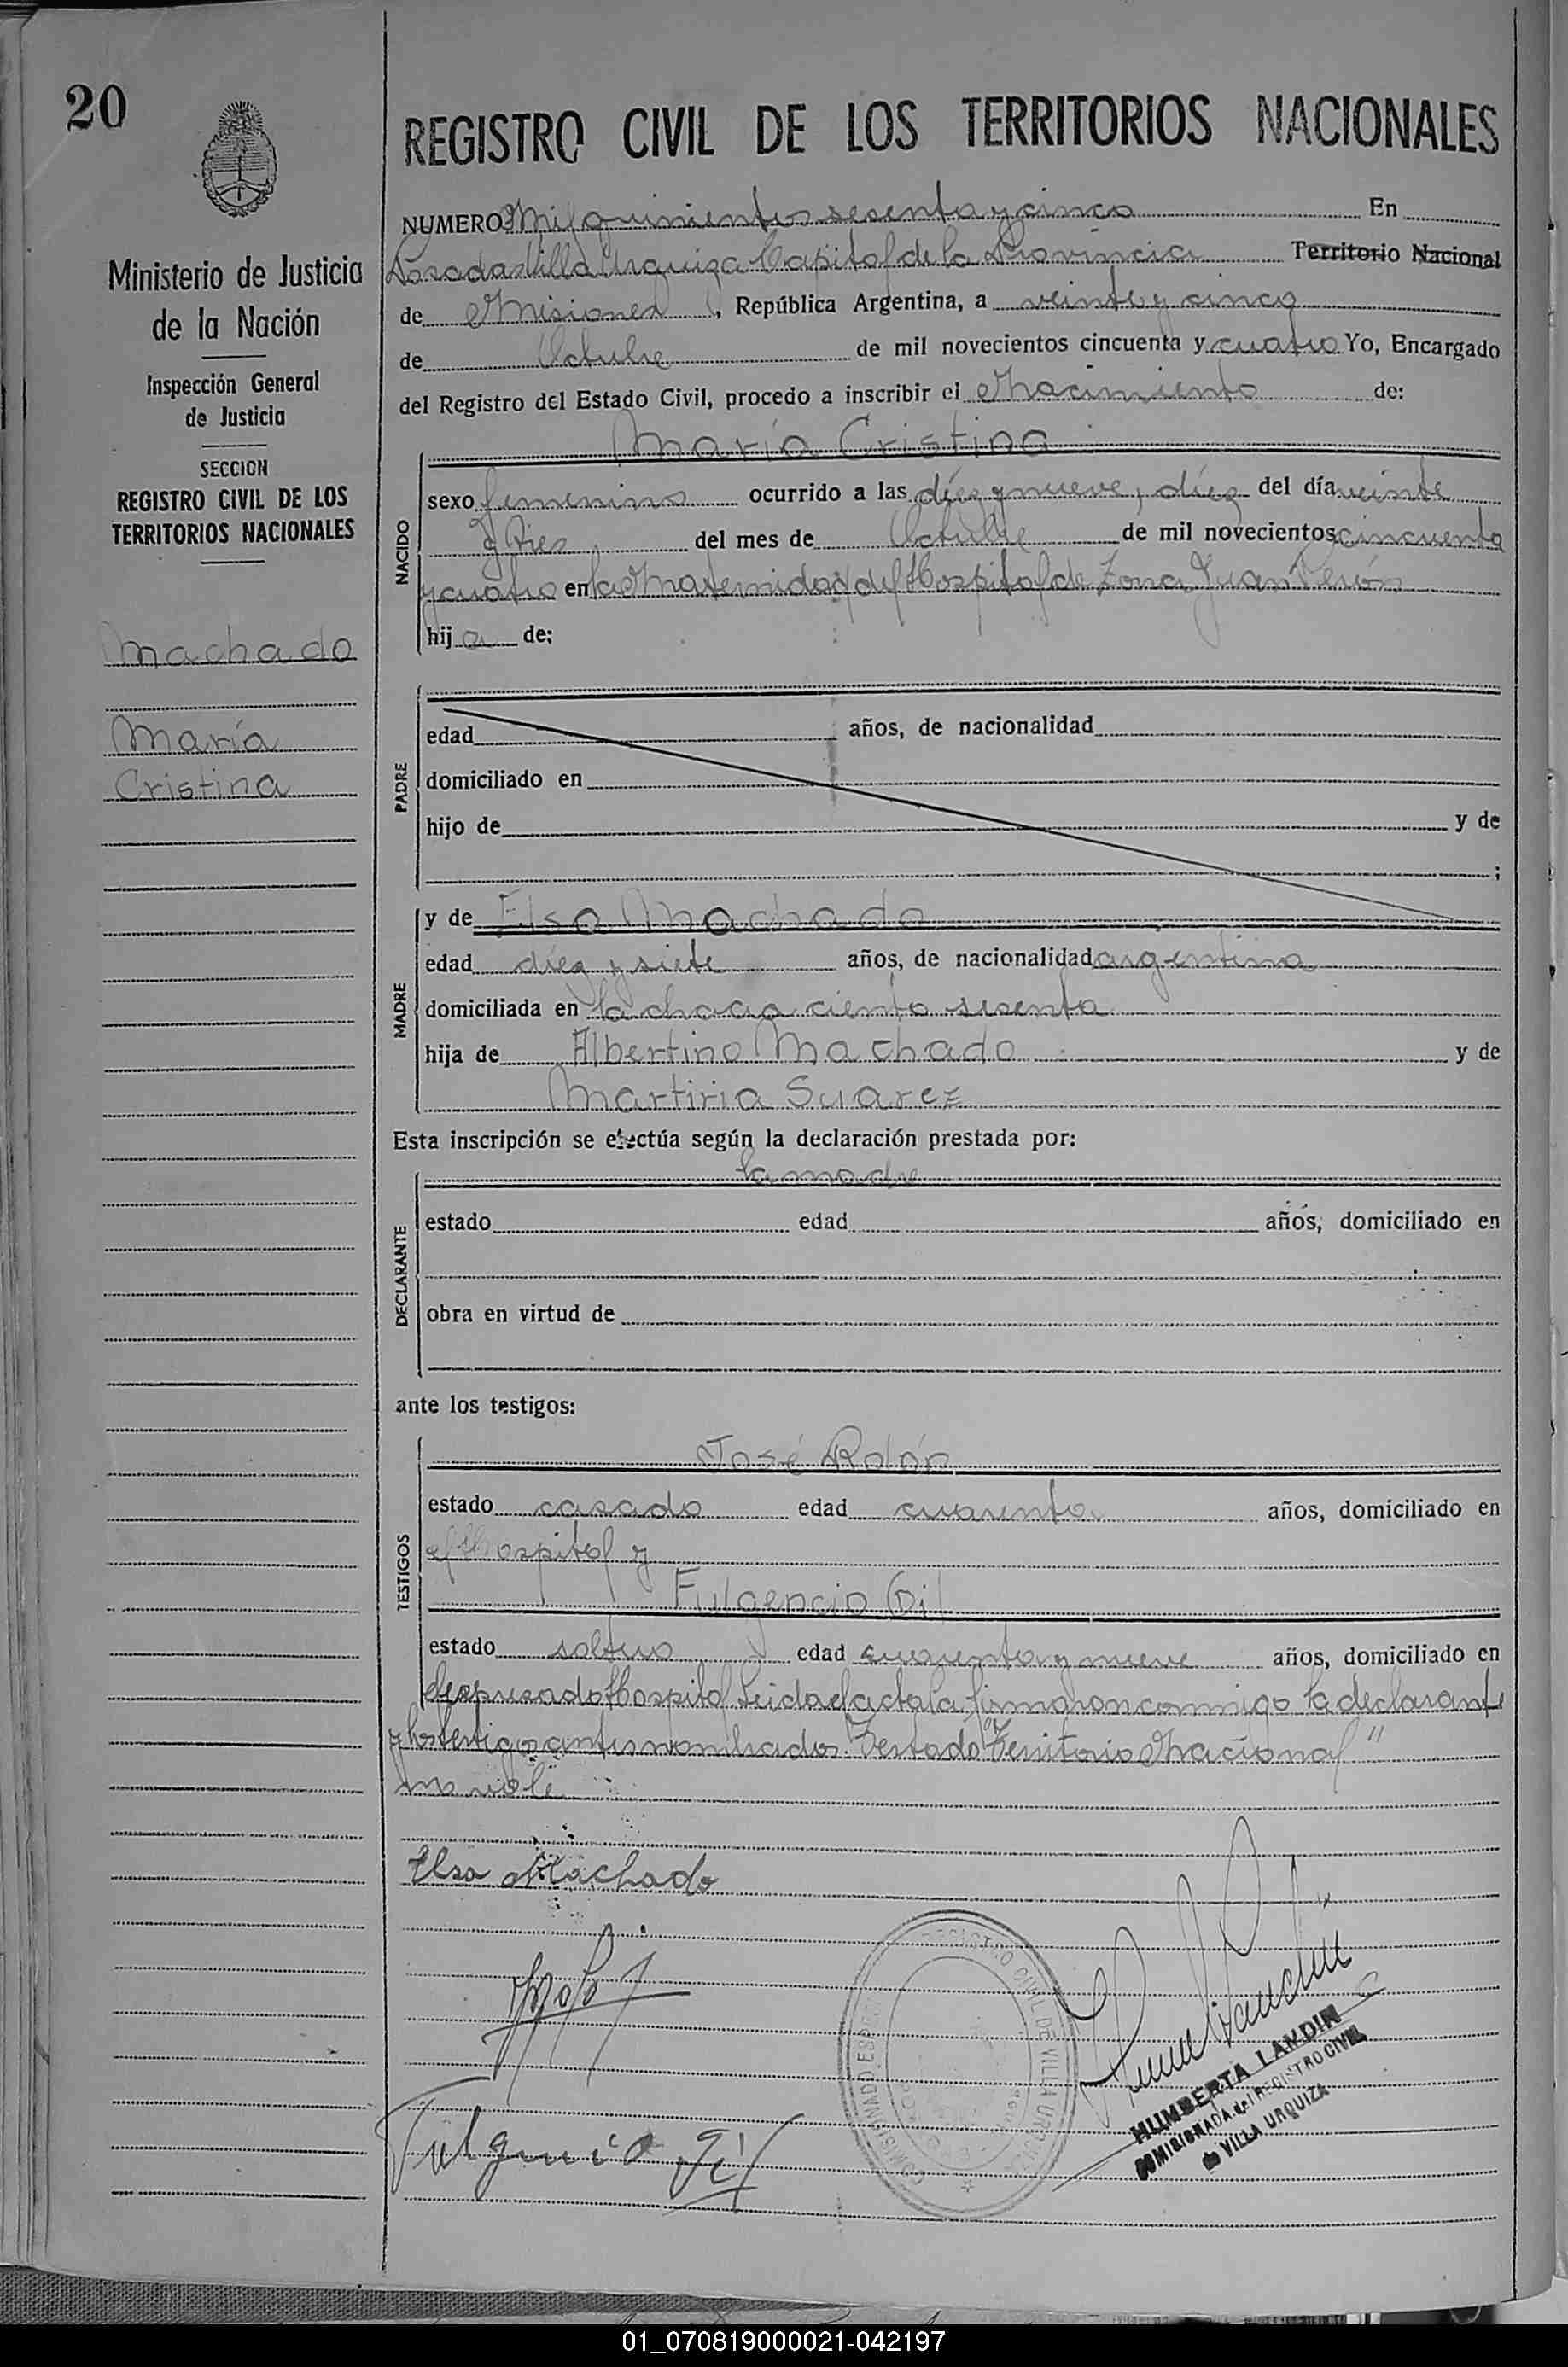 20
REGISTRO CIVIL DE LOS TERRITORIOS NACIONALES
Ministerio de Justicia
de la Nación
Inspección General
de Justicia
SECCION
REGISTRO CIVIL DE LOS
TERRITORIOS NACIONALES
Machado
María
Cristina
NUMERO Mil quinientos sesenta y cinco En
Posadas Villa Urquiza Capital de la Provincia Territorio Nacional
de Misiones, República Argentina, a veinte y cinco
de Octubre de mil novecientos cincuenta y cuatro Yo, Encargado
del Registro del Estado Civil, procedo a inscribir el Nacimiento de:
NACIDO
María Cristina
sexo femenino ocurrido a las diez y nueve, diez del día veinte
y tres del mes de Octubre de mil novecientos cincuenta
y cuatro en la Maternidad del Hospital de Zona Juan Perón
hija de:
PADRE
edad años, de nacionalidad
domiciliado en
hijo de y de
;
MADRE
y de Elsa Machado
edad diez y siete años, de nacionalidad argentina
domiciliada en la chacra ciento sesenta
hija de Albertino Machado y de
Martiria Suarez
Esta inscripción se efectúa según la declaración prestada por:
DECLARANTE
la madre
estado edad años, domiciliado en
obra en virtud de
ante los testigos:
TESTIGOS
José Rolón
estado casado edad cuarenta años, domiciliado en
el Hospital y
Fulgencio Gil
estado soltero edad cuarenta y nueve años, domiciliado en
el expresado Hospital Leida el acta la firmaron conmigo la declarante
y los testigos antes nombrados. Testado "Territorio Nacional"
no vale
Elsa Machado
Fulgencio Gil
REGISTRO CIVIL DE VILLA URQUIZA
HUMBERTA LANDIN
COMISIONADA del REGISTRO CIVIL
de VILLA URQUIZA
01_070819000021-042197